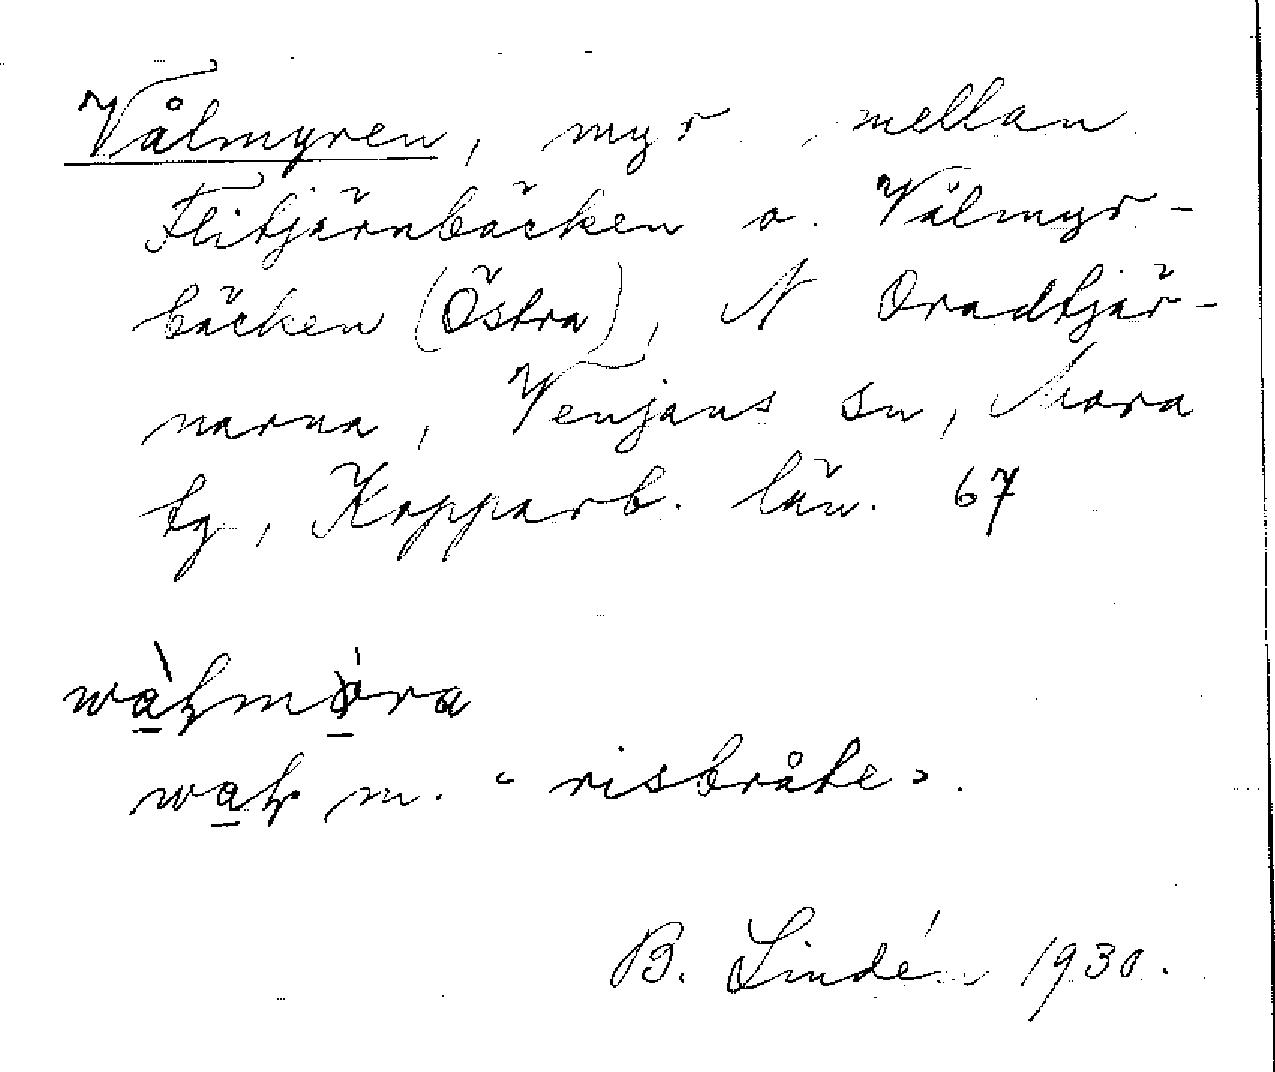 Vålmyren, myr, mellan
Flitjärnbäcken o. Vålmyr-
bäcken (Östra), N Oradtjär-
narna, Venjans sn, Mora
tg, Kopparb. län. 67
m. "risbråte".
B. Lindén 1930.